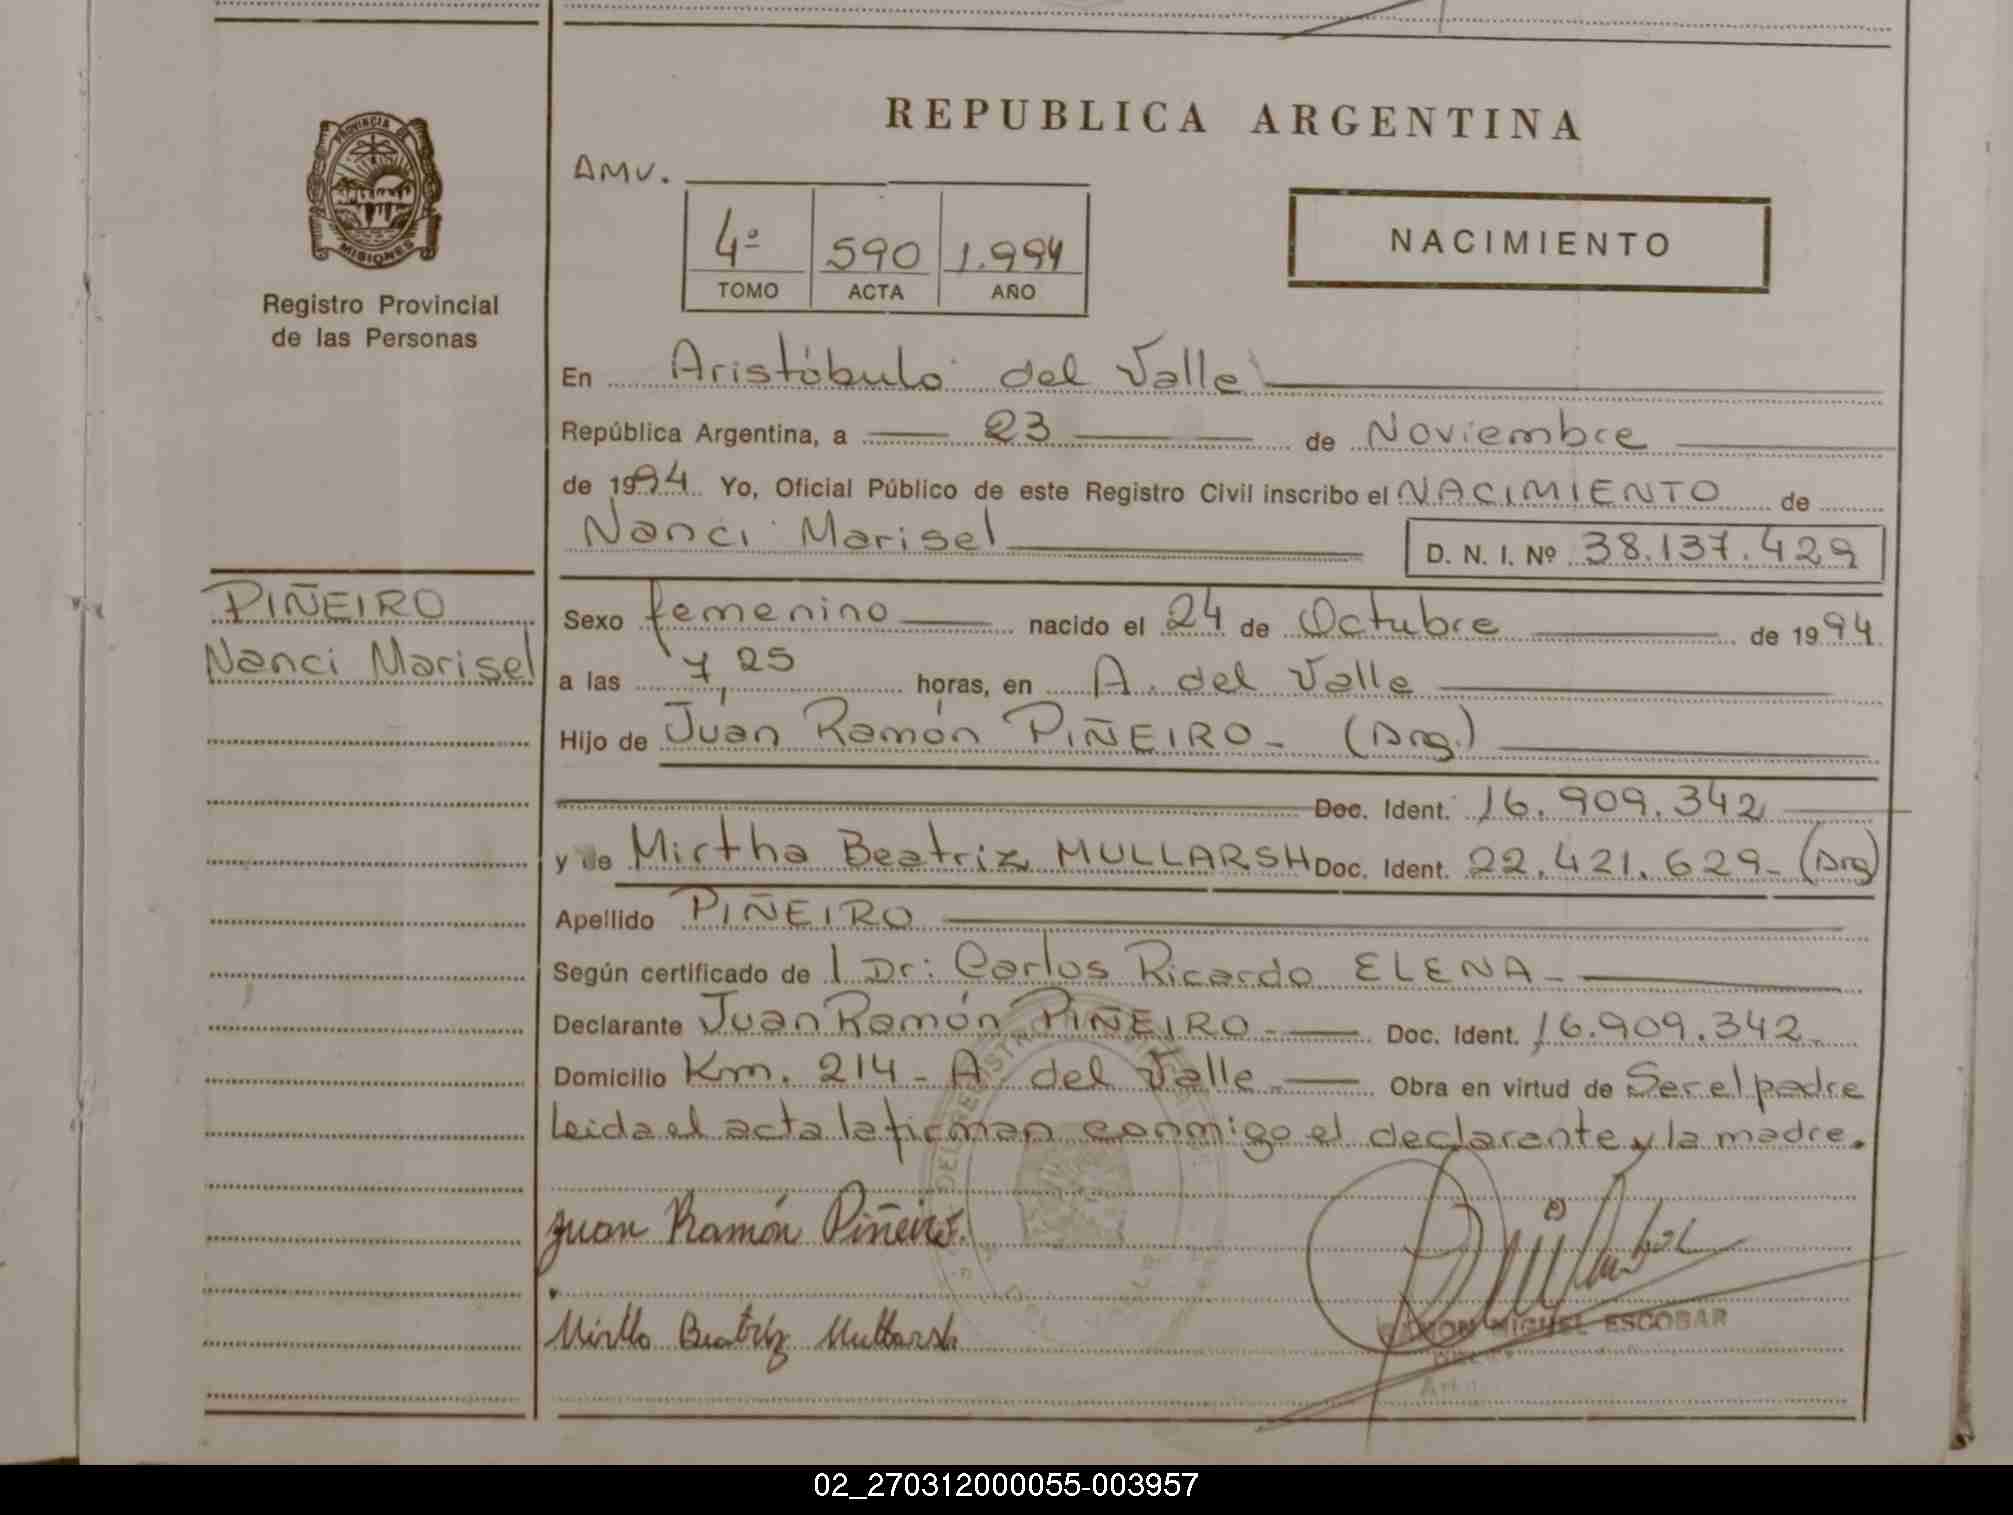 REPUBLICA ARGENTINA
PROVINCIA DE
MISIONES
Registro Provincial
de las Personas
AMV.
4º 590 1.994
TOMO ACTA AÑO
NACIMIENTO
En Aristóbulo del Valle
República Argentina, a 23 de Noviembre
de 1994 Yo, Oficial Público de este Registro Civil inscribo el NACIMIENTO de
Nanci Marisel D. N. I. Nº 38.137.429
PIÑEIRO
Nanci Marisel
Sexo femenino nacido el 24 de Octubre de 1994
a las 7,25 horas, en A. del Valle
Hijo de Juan Ramón PIÑEIRO - (Arg.)
Doc. Ident. 16.909.342
y de Mirtha Beatriz MULLARSH Doc. Ident. 22.421.629- (Arg)
Apellido PIÑEIRO
Según certificado de l Dr: Carlos Ricardo ELENA -
Declarante Juan Ramón PIÑEIRO - Doc. Ident. 16.909.342
Domicilio Km. 214 - A. del Valle Obra en virtud de Ser el padre
Leida el acta la firman conmigo el declarante y la madre.
Juan Ramón Piñeiro.
Beatriz Mullarsh
MIGUEL ESCOBAR
02_270312000055-003957